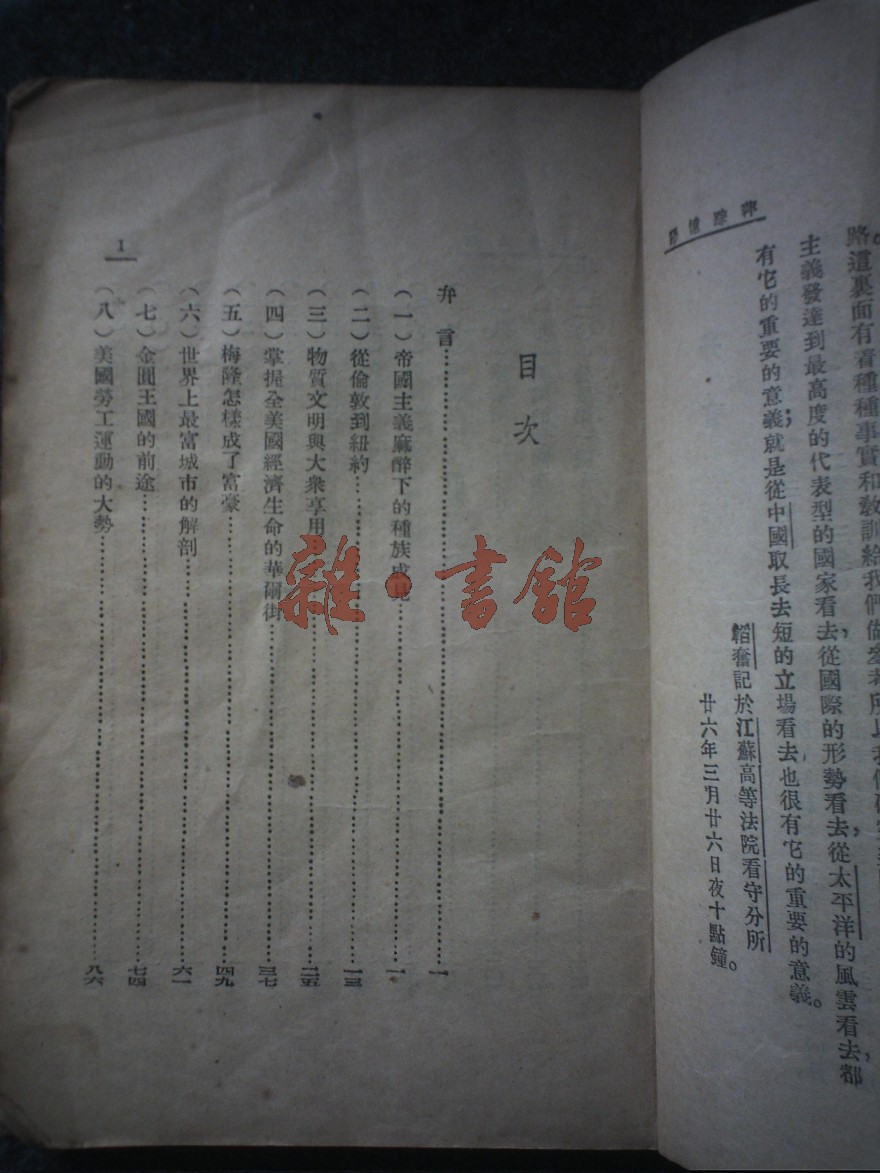 萍踪憶語
路。這裏面有着種種事實和教訓給我們做參考所以我們
主義發達到最高度的代表型的國家看去，從國際的形勢看去，從太平洋的風雲看去，都
有它的重要的意義；就是從中國取長去短的立場看去也很有它的重要的意義。
韜奮記於江蘇高等法院看守分所
廿六年三月廿六日夜十點鐘。
目次
弁言……一
（一）帝國主義麻醉下的種族成見……一
（二）從倫敦到紐約……一三
（三）物質文明與大衆享用……二五
（四）掌握全美國經濟生命的華爾街……三七
（五）梅隆怎樣成了富豪……四九
（六）世界上最富城市的解剖……六一
（七）金圓王國的前途……七四
（八）美國勞工運動的大勢……八六
1
雜·書館